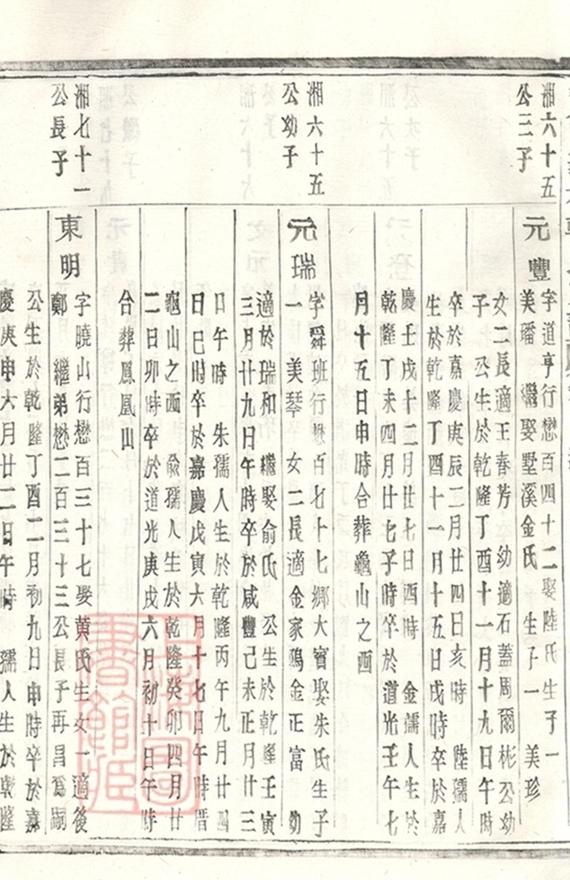 湘六十五
公三子
元豐
字道亨行懋百四十二娶陸氏生子一
美璠 繼娶墅溪金氏 生子一 美珍
女二長適王春芳 幼適石蓋周爾彬公幼
子 公生於乾隆丁酉十一月十九日午時
卒於嘉慶庚辰二月廿四日亥時 陸孺人
生於乾隆丁酉十一月十五日戌時卒於嘉
慶壬戌十二月廿七日酉時 金孺人生於
乾隆丁未四月廿七子時卒於道光壬午七
月十五日申時合葬龜山之西
湘六十五
公幼子
元瑞
字舜班行懋百七十七鄉大賓娶朱氏生子
一 美琴 女二長適金家鴎金正富 幼
適於瑞和 繼娶俞氏 公生於乾隆壬寅
三月廿九日午時卒於咸豐己未正月廿三
日午時 朱孺人生於乾隆丙午九月廿四
日巳時卒於嘉慶戊寅六月十七日午時厝
龜山之西 俞孺人生於乾隆癸卯四月廿
二日卯時卒於道光庚戌六月初十日午時
合葬鳳凰山
湘七十一
公長子
東明
字曉山行懋百三十七娶黄氏生女一適後
鄭 繼弟懋二百三十三公長子再昌爲嗣
公生於乾隆丁酉二月初九日申時卒於嘉
慶庚申六月廿二日午時 孺人生於乾隆